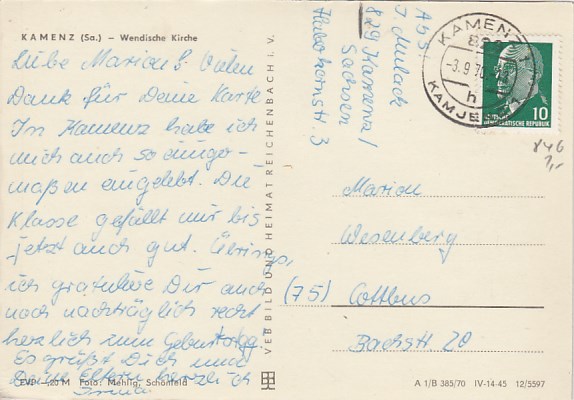 KAMENZ (Sa.) — Wendische Kirche
Liebe Marion! Vielen
Dank für Deine Karte
In Kamenz habe ich
mich auch so einiger-
maßen eingelebt. Die
Klasse gefällt mir bis
jetzt auch gut. Übrigens,
ich gratuliere Dir auch
noch nachträglich recht
herzlich zum Geburtstag.
Es grüßt Dich und
Deine Eltern herzlich
EVP —,20 M Foto: Mehlig, Schönfeld
VEB BILD UND HEIMAT REICHENBACH i. V.
Abs.
829 Kamenz /
Sachsen
KAMENZ 1
-3.9.70
h
KAMJE
10
DEUTSCHE DEMOKRATISCHE REPUBLIK
846
1,-
Marion
Wesenberg
(75) Cottbus
Bachstr. 20
A 1/B 385/70 IV-14-45 12/5597